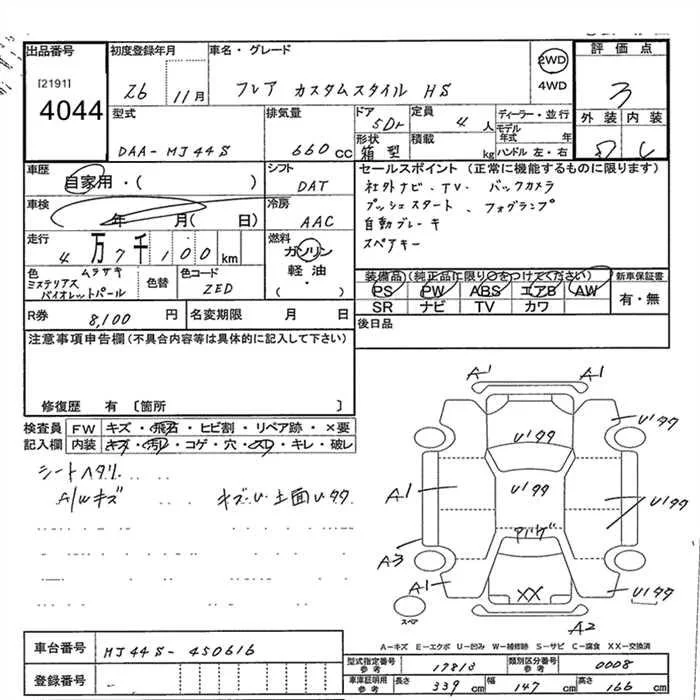 出品番号 初度登録年月 車名・グレード 評価点
[2191] 2WD
4044 26 11月 フレア カスタムスタイル HS 4WD 3
型式 排気量 ドア 定員 ディーラー・並行 外装 内装
5Dr 4人 モデル年式 年
DAA-MJ44S 660cc 形状 箱型 積載 kg ハンドル 左・右 C
車歴 自家用・( ) シフト DAT
セールスポイント (正常に機能するものに限ります)
社外ナビ、TV、バックカメラ
プッシュスタート、フォグランプ
自動ブレーキ
スペアキー
車検 年 月( 日) 冷房 AAC
走行 4万7千100km 燃料 ガソリン 軽油 ( )
色 ムラサキ ミステリアスバイオレットパール 色替 色コード ZED
装備品(純正品に限り○をつけてください) 新車保証書
PS PW ABS エアB AW 有・無
SR ナビ TV カワ
R券 8,100円 名変期限 月 日 後日品
注意事項申告欄(不具合内容等は具体的に記入して下さい)
修復歴 有〔箇所 〕
検査員 FW キズ・飛石・ヒビ割・リペア跡・×要
記入欄 内装 キズ・汚れ・コゲ・穴・スレ・キレ・破レ
シートヘタリ
A/Wキズ キズ・U 土面Uタタ
A1 A1
U1タタ U1タタ
A1 U1タタ U1タタ
A3
A1 XX U1タタ
スペア A2
A-キズ E-エクボ U-凹み W-補修跡 S-サビ C-腐食 XX-交換済
車台番号 MJ44S-450616
登録番号 -
型式指定番号 参考 17818 類別区分番号 参考 0008
車庫証明用 参考 長さ 339cm 幅 147cm 高さ 166cm